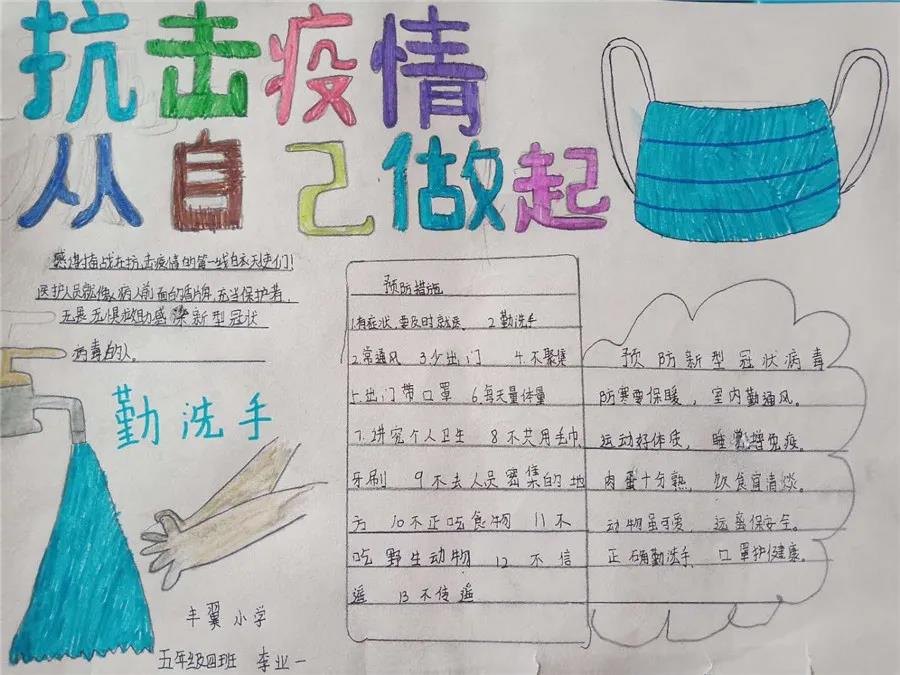 抗击疫情
从自己做起
感谢奋战在抗击疫情的第一线白衣天使们!
医护人员就像病人前面的盾牌,充当保护着,
无畏无惧救助感染新型冠状
病毒的人。
勤洗手
丰翼小学
五年级四班 李业一
预防措施
1.有症状,要及时就医、 2 勤洗手
2.常通风 3少出门 4.不聚集
5.出门带口罩 6.每天量体量
7.讲究个人卫生 8不共用毛巾
牙刷 9不去人员密集的地
方 10不正吃食物 11不
吃野生动物 12不信
遥 13不传遥
预防新型冠状病毒
防寒要保暖,室内勤通风。
运动好体质,睡觉增免疫。
肉蛋十分熟,饮食宜清淡。
动物虽可爱,远离保安全。
正确勤洗手、口罩护健康。